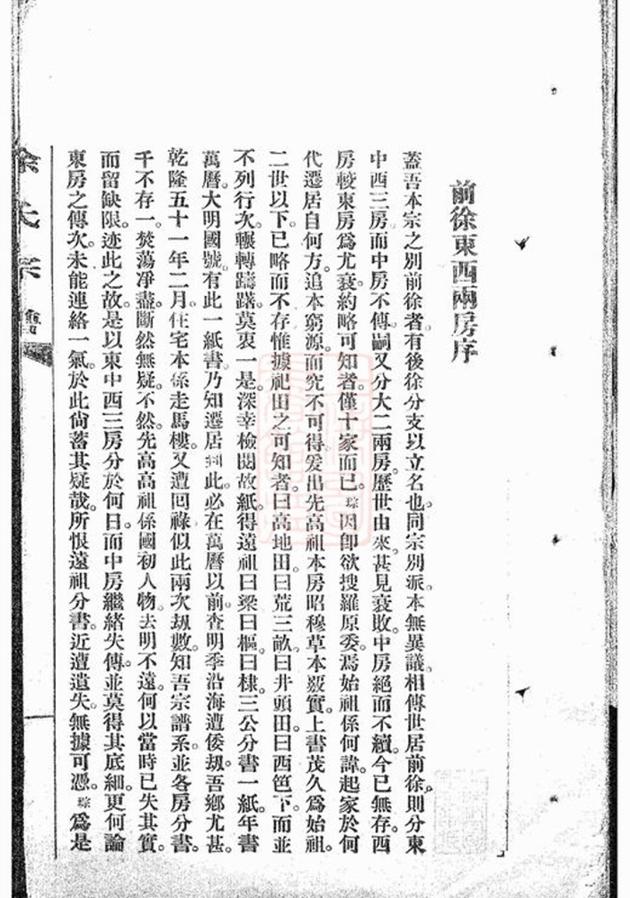 前徐東西兩房序
蓋吾本宗之別前徐者有後徐分支以立名也。同宗別派本無異議。相傳世居前徐。則分東
中西三房而中房不傳。嗣又分大二兩房。歷世由來。甚見衰敗。中房絕而不續。今已無存。西
房較東房爲尤衰。約略可知者。僅十家而已。琮因卽欲搜羅原委。爲始祖係何諱。起家於何
代。遷居自何方。追本窮源。而究不可得。爰出先高祖本房昭穆草本覈質。上書茂久爲始祖。
二世以下。已略而不存。惟據祀田之可知者。曰高地田。曰荒三畝。曰井頭田。曰西笆下。而並
不列行次。輾轉躊躇。莫衷一是。深幸檢閱故紙。得遠祖曰梁曰樞曰棣三公分書一紙。年書
萬曆。大明國號。有此一紙書。乃知遷居 此。必在萬曆以前。查明季沿海遭倭刼。吾鄉尤甚。
乾隆五十一年二月。住宅本係走馬樓。又遭回祿。似此兩次刼數。知吾宗譜系並各房分書。
千不存一。焚蕩淨盡。斷然無疑。不然。先高高祖係國初人物。去明不遠。何以當時已失其實。
而留缺限。迹此之故。是以東中西三房分於何日。而中房繼緒失傳。並莫得其底細。更何論
東房之傳次。未能連絡一氣。於此尙蓄其疑哉。所恨遠祖分書。近遭遺失。無據可憑。琮爲是
余氏宗譜